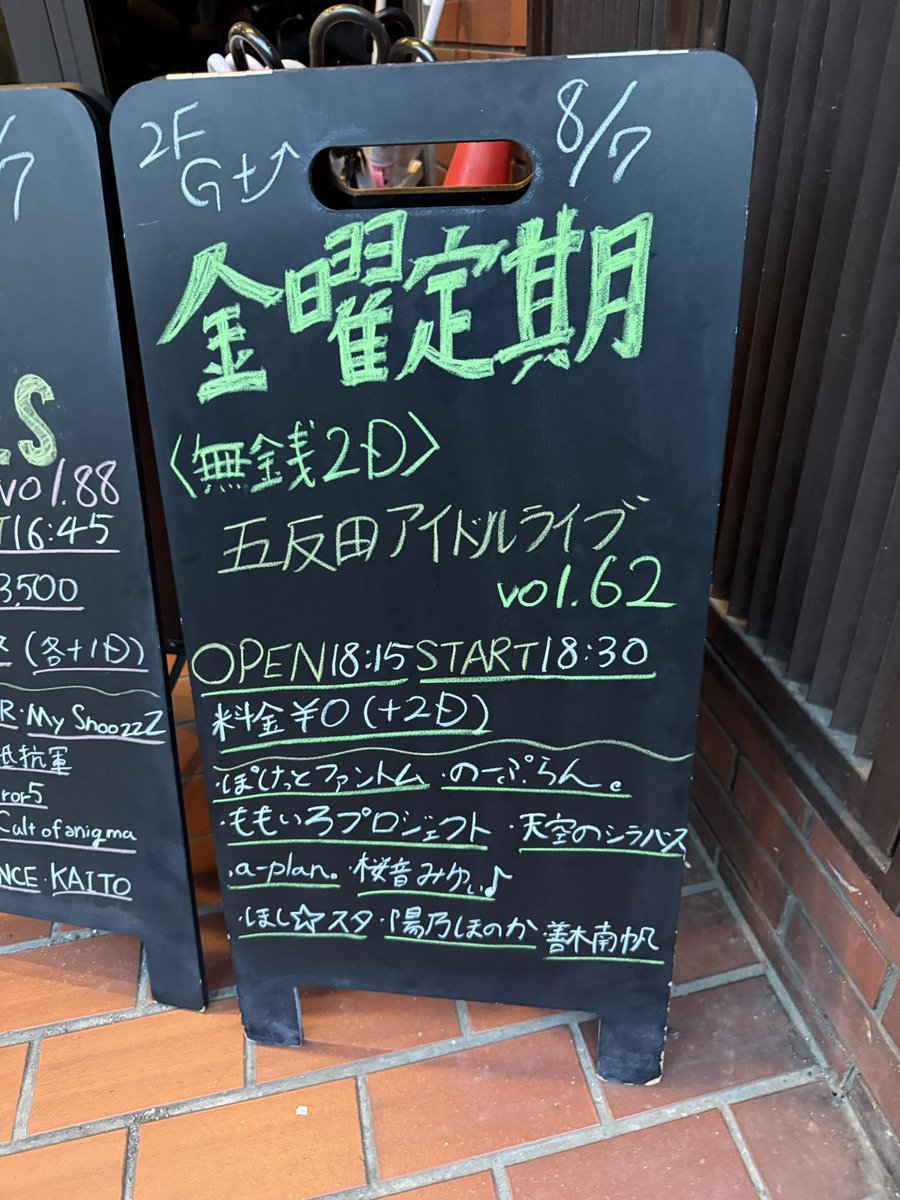 /7
S
vol.88
T16:45
3,500
(各+1D)
R・My SnoozzZ
抵抗軍
ror5
Cult of anigma
NCE・KAITO
2F
G+
8/7
金曜定期
〈無銭2D〉
五反田アイドルライブ
vol.62
OPEN18:15 START18:30
料金¥0(+2D)
・ぽけっとファントム・のーぷらん。
・ももいろプロジェクト・天空のシラバス
・a-plan.・桜音みゆぃ♪
・ほし☆スタ・陽乃ほのか 善木南帆